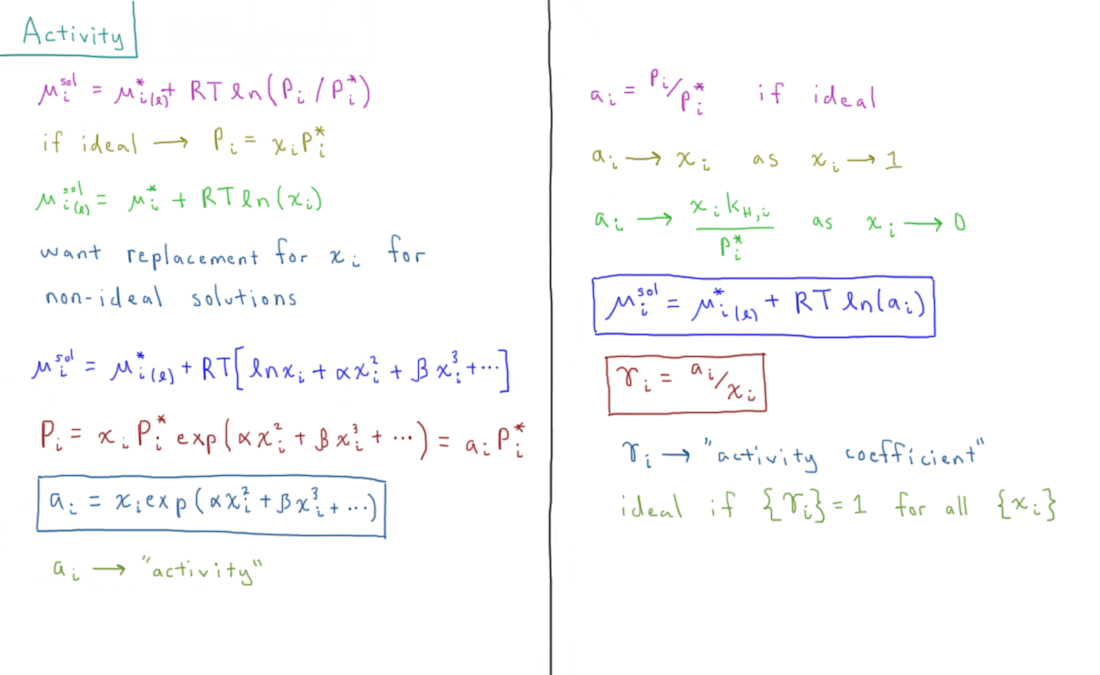 Activity
μᵢˢᵒˡ = μᵢ*₍ₗ₎ + RT ln(Pᵢ / Pᵢ*)
if ideal → Pᵢ = xᵢPᵢ*
μᵢ₍ₗ₎ˢᵒˡ = μᵢ* + RT ln(xᵢ)
want replacement for xᵢ for
non-ideal solutions
μᵢˢᵒˡ = μᵢ*₍ₗ₎ + RT[ln xᵢ + αxᵢ² + βxᵢ³ + ···]
Pᵢ = xᵢPᵢ* exp(αxᵢ² + βxᵢ³ + ···) = aᵢPᵢ*
aᵢ = xᵢ exp(αxᵢ² + βxᵢ³ + ···)
aᵢ → "activity"
aᵢ = Pᵢ/Pᵢ* if ideal
aᵢ → xᵢ as xᵢ → 1
aᵢ → xᵢ k_H,i / Pᵢ* as xᵢ → 0
μᵢˢᵒˡ = μᵢ*₍ₗ₎ + RT ln(aᵢ)
γᵢ = aᵢ/xᵢ
γᵢ → "activity coefficient"
ideal if {γᵢ} = 1 for all {xᵢ}